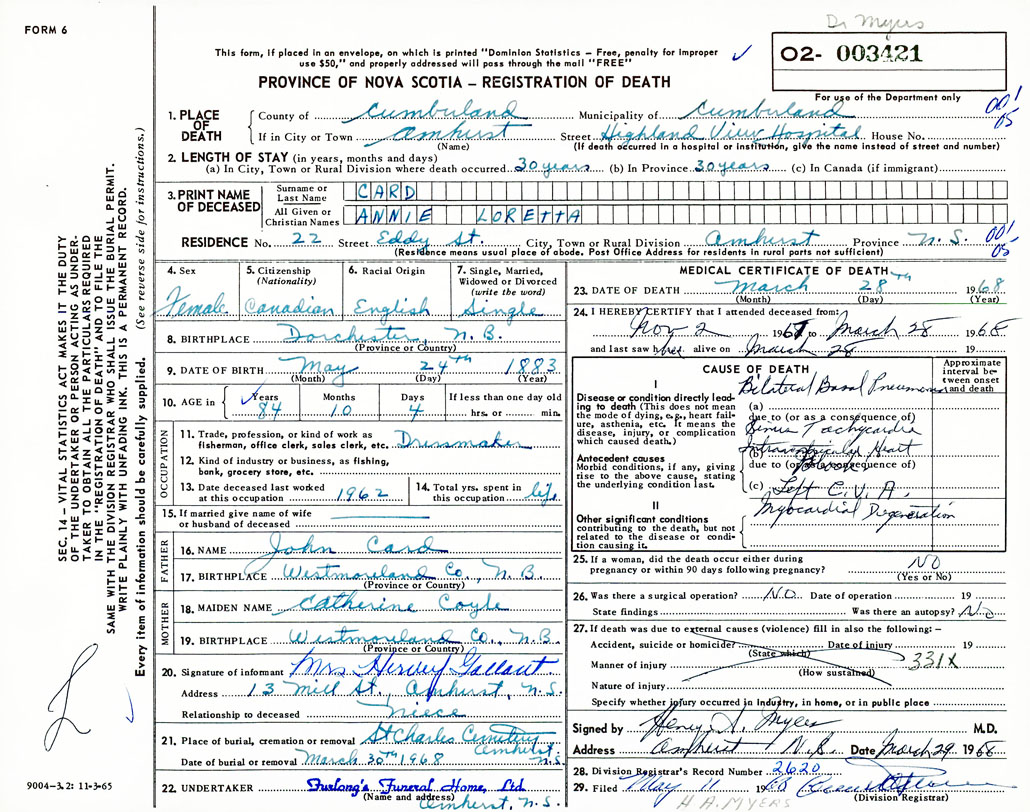 Dr Myers
FORM 6
This form, if placed in an envelope, on which is printed "Dominion Statistics – Free, penalty for improper
use $50," and properly addressed will pass through the mail "FREE"
02- 003421
PROVINCE OF NOVA SCOTIA – REGISTRATION OF DEATH
For use of the Department only
001
05
1. PLACE OF DEATH
County of Cumberland Municipality of Cumberland
If in City or Town Amherst Street Highland View Hospital House No.
(Name) (If death occurred in a hospital or institution, give the name instead of street and number)
2. LENGTH OF STAY (in years, months and days)
(a) In City, Town or Rural Division where death occurred 30 years (b) In Province 30 years (c) In Canada (if immigrant)
3. PRINT NAME OF DECEASED
Surname or Last Name CARD
All Given or Christian Names ANNIE LORETTA
RESIDENCE No. 22 Street Eddy St. City, Town or Rural Division Amherst Province N.S.
001
05
(Residence means usual place of abode. Post Office Address for residents in rural parts not sufficient)
4. Sex
Female
5. Citizenship (Nationality)
Canadian
6. Racial Origin
English
7. Single, Married, Widowed or Divorced (write the word)
Single
8. BIRTHPLACE Dorchester, N.B.
(Province or Country)
9. DATE OF BIRTH May 24th 1883
(Month) (Day) (Year)
10. AGE in Years Months Days If less than one day old
84 10 4 hrs. or min.
OCCUPATION
11. Trade, profession, or kind of work as fisherman, office clerk, sales clerk, etc. Dressmaker
12. Kind of industry or business, as fishing, bank, grocery store, etc.
13. Date deceased last worked at this occupation 1962
14. Total yrs. spent in this occupation life
15. If married give name of wife or husband of deceased
FATHER
16. NAME John Card
17. BIRTHPLACE Westmoreland Co., N.B.
(Province or Country)
MOTHER
18. MAIDEN NAME Catherine Coyle
19. BIRTHPLACE Westmoreland Co., N.B.
(Province or Country)
20. Signature of informant Mrs Hervey Gallant
Address 13 Mill St., Amherst, N.S.
Relationship to deceased Niece
21. Place of burial, cremation or removal St Charles Cemetery Amherst N.S.
Date of burial or removal March 30th 1968
22. UNDERTAKER Furlong's Funeral Home, Ltd
(Name and address) Amherst, N.S.
MEDICAL CERTIFICATE OF DEATH
23. DATE OF DEATH March 28th 1968
(Month) (Day) (Year)
24. I HEREBY CERTIFY that I attended deceased from:
Nov 2 1967 to March 28 1968
and last saw her alive on March 28 19
CAUSE OF DEATH
Approximate interval between onset and death
I
Disease or condition directly leading to death (This does not mean the mode of dying, e.g., heart failure, asthenia, etc. It means the disease, injury, or complication which caused death.)
(a) Bilateral Basal Pneumonia
due to (or as a consequence of)
Sinus Tachycardia
Antecedent causes
Morbid conditions, if any, giving rise to the above cause, stating the underlying condition last.
(b) Heart
due to (or as a consequence of)
(c) Left C.V.A.
II
Other significant conditions contributing to the death, but not related to the disease or condition causing it.
Myocardial Degeneration
25. If a woman, did the death occur either during pregnancy or within 90 days following pregnancy? NO
(Yes or No)
26. Was there a surgical operation? NO Date of operation 19
State findings Was there an autopsy? No
27. If death was due to external causes (violence) fill in also the following: –
Accident, suicide or homicide? Date of injury 19
(State which)
331X
Manner of injury
(How sustained)
Nature of injury
Specify whether injury occurred in industry, in home, or in public place
Signed by Henry A. Myers M.D.
Address Amherst N.S. Date March 29 1968
28. Division Registrar's Record Number 2620
29. Filed May 11 1968
(Division Registrar)
H A. MYERS
SEC. 14 – VITAL STATISTICS ACT MAKES IT THE DUTY
OF THE UNDERTAKER OR PERSON ACTING AS UNDER-
TAKER TO OBTAIN ALL THE PARTICULARS REQUIRED
IN THE "REGISTRATION OF DEATH" AND TO FILE THE
SAME WITH THE DIVISION REGISTRAR WHO SHALL ISSUE THE BURIAL PERMIT.
WRITE PLAINLY WITH UNFADING INK. THIS IS A PERMANENT RECORD.
Every item of information should be carefully supplied. (See reverse side for instructions.)
9004-3.2: 11-3-65